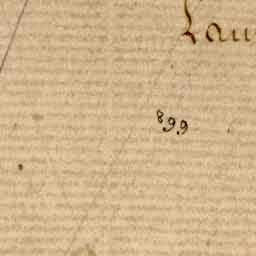 Lau
899